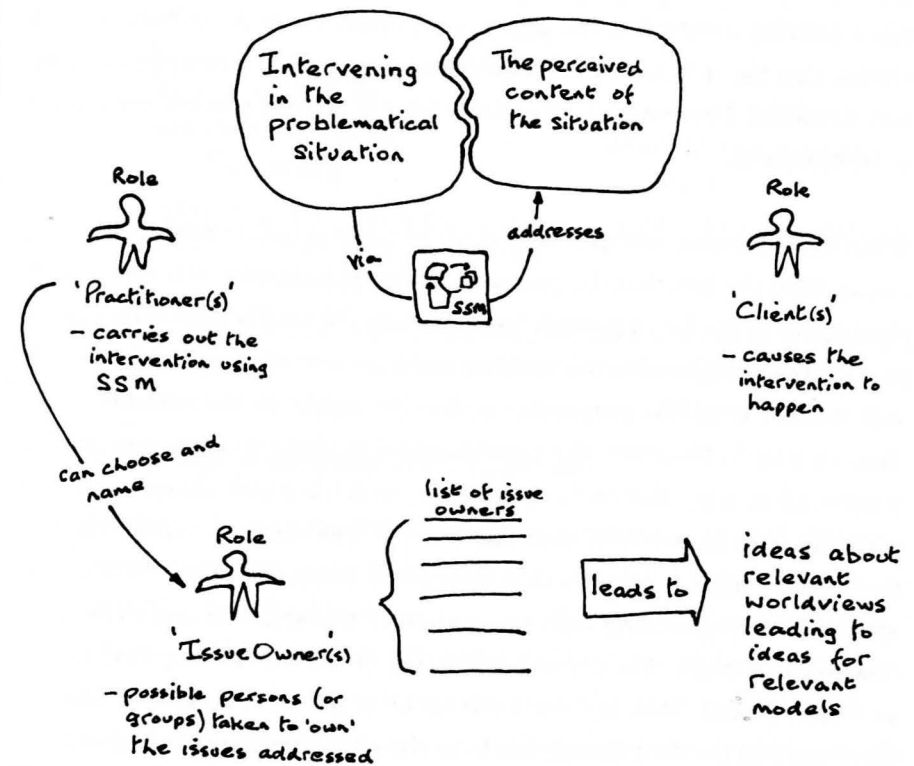 Intervening
in the
problematical
situation
The perceived
content of
the situation
via
addresses
SSM
Role
'Practitioner(s)'
- carries out the
intervention using
SSM
Role
'Client(s)'
- causes the
intervention to
happen
can choose and
name
Role
'Issue Owner(s)
- possible persons (or
groups) taken to 'own'
the issues addressed
list of issue
owners
leads to
ideas about
relevant
worldviews
leading to
ideas for
relevant
models